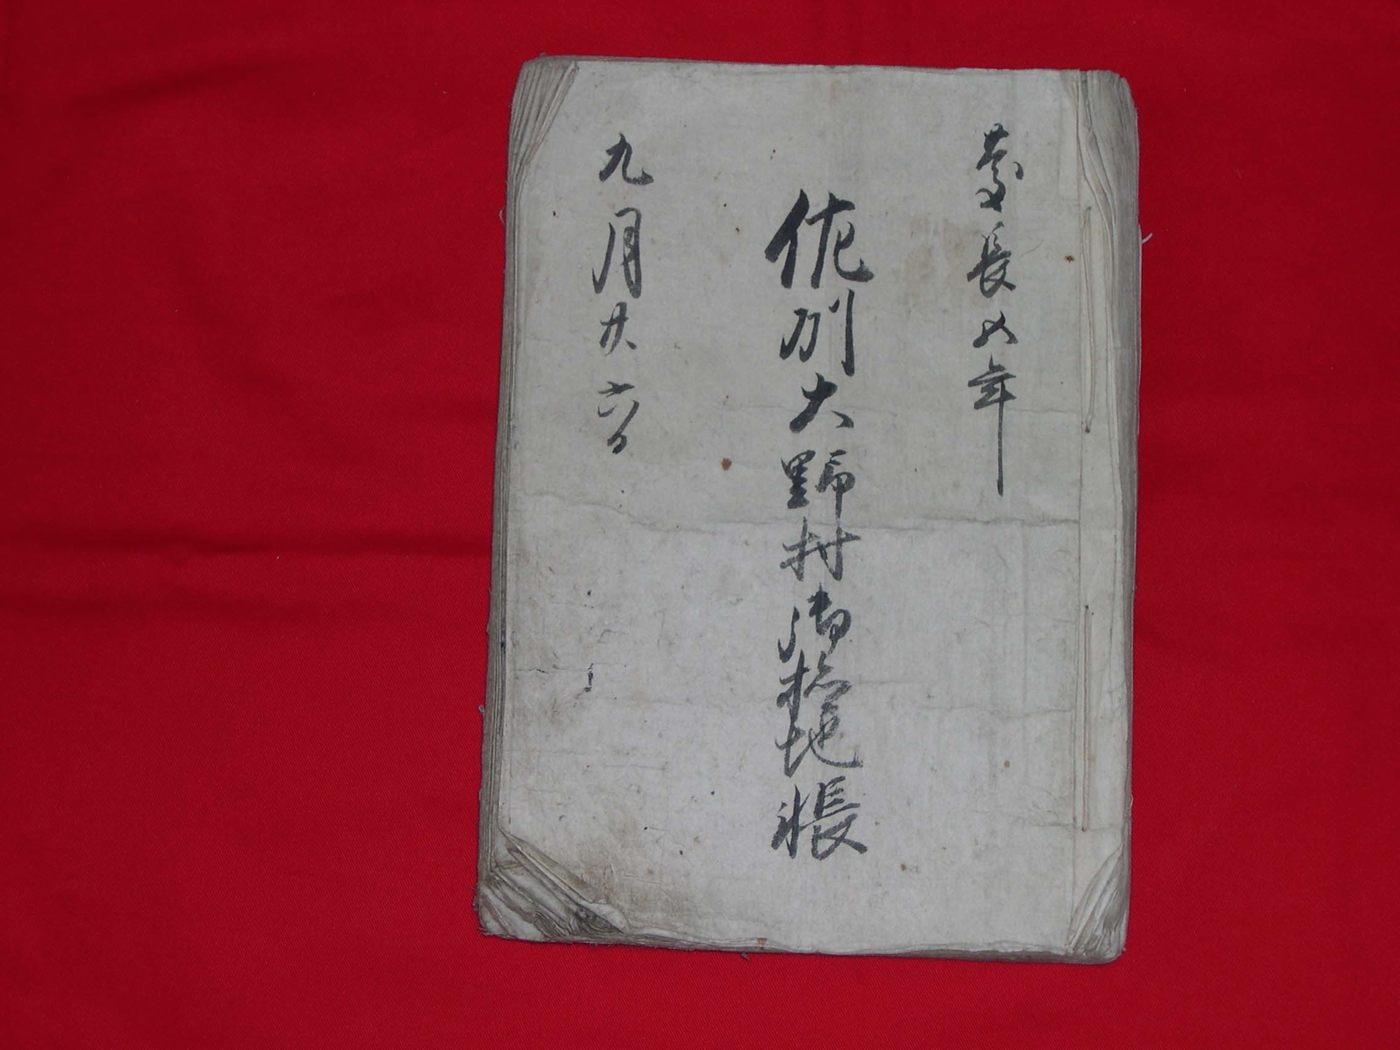 慶長五年
佐州大野村御検地帳
九月廿六日